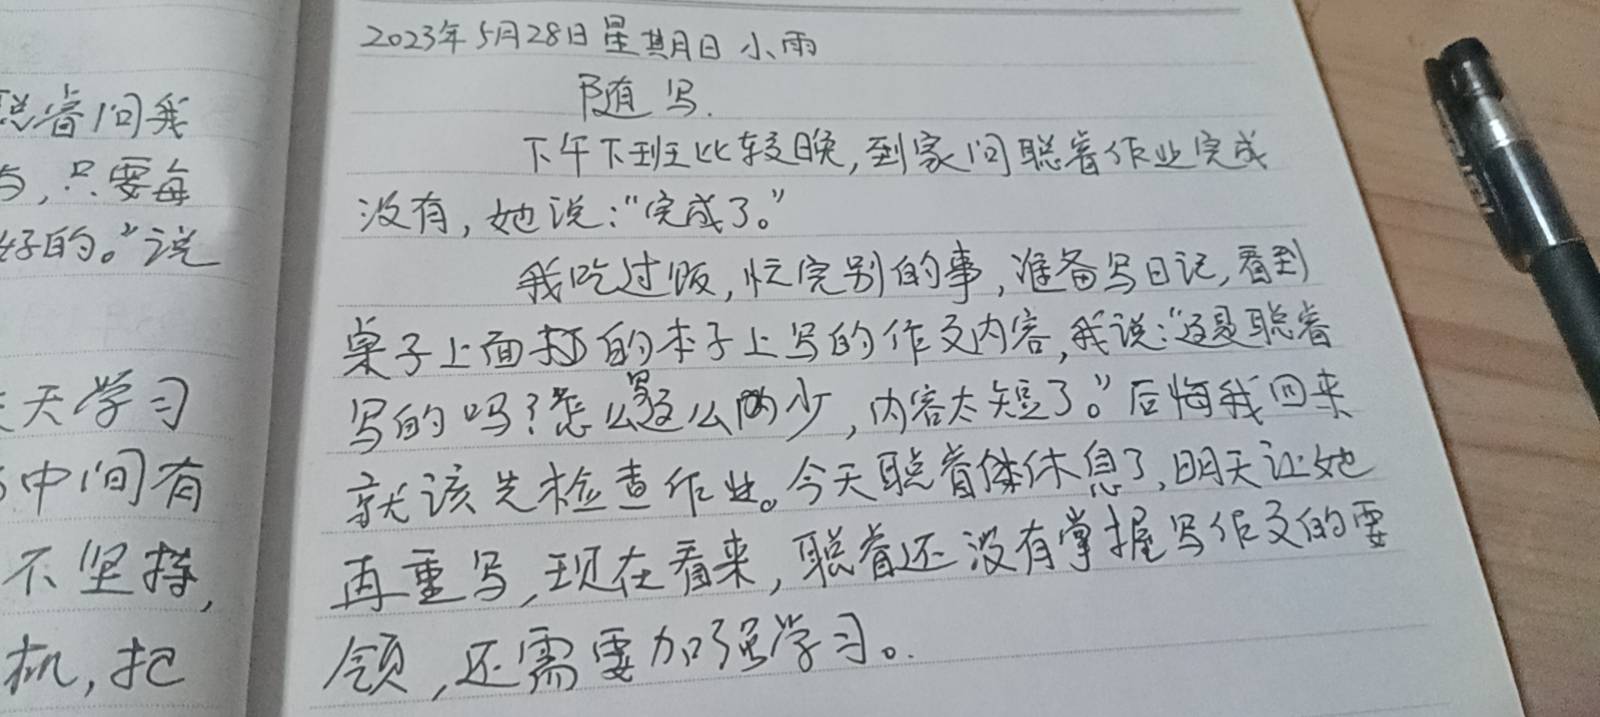 聪睿问我
与，只要每
好的。”说
天天学习
中间有
不坚持，
机，把
2023年5月28日星期日 小雨
随写.
下午下班比较晚，到家问聪睿作业完成
没有，她说：“完成了。”
我吃过饭，忙完别的事，准备写日记，看到
桌子上面打的本子上写的作文内容，我说：“这是聪睿
写的吗？怎么写这么少，内容太短了。”后悔我回来
就该先检查作业。今天聪睿休息了，明天让她
再重写，现在看来，聪睿还没有掌握写作文的要
领，还需要加强学习。